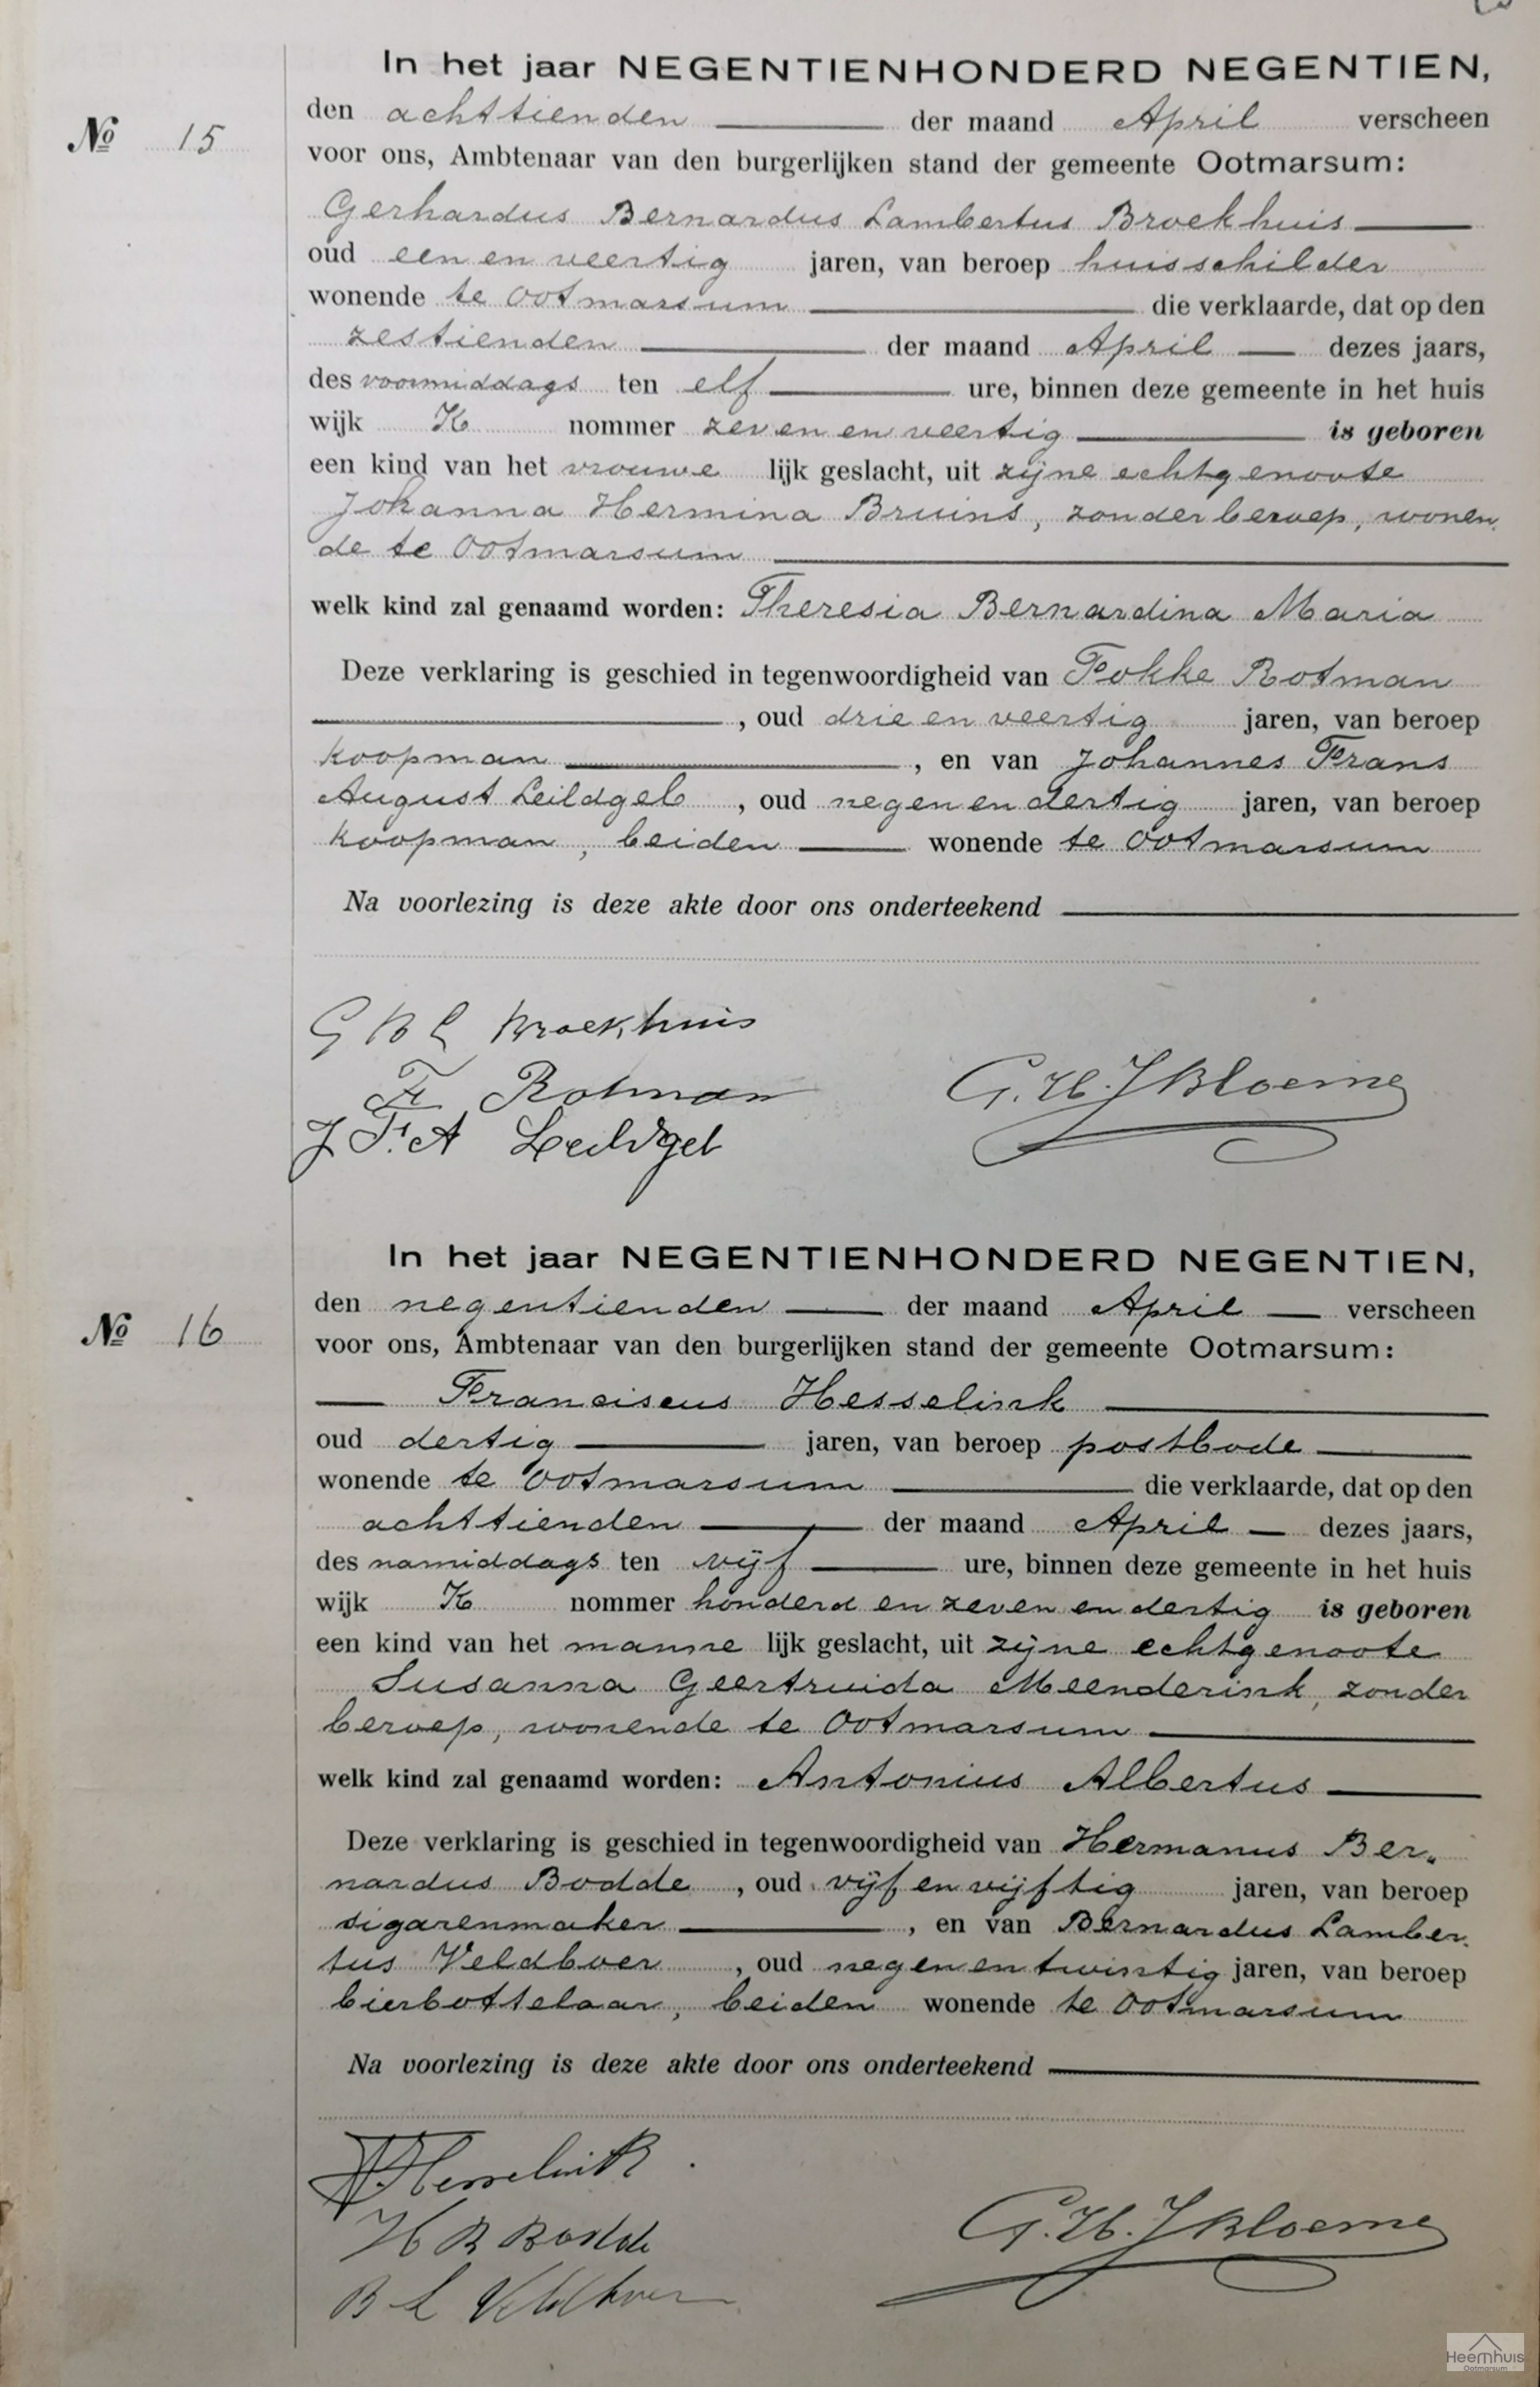 In het jaar NEGENTIENHONDERD NEGENTIEN,
den achttienden der maand April verscheen
Nº 15
voor ons, Ambtenaar van den burgerlijken stand der gemeente Ootmarsum:
Gerhardus Bernardus Lambertus Broekhuis
oud een en veertig jaren, van beroep huisschilder
wonende te Ootmarsum die verklaarde, dat op den
zestienden der maand April dezes jaars,
des voormiddags ten elf ure, binnen deze gemeente in het huis
wijk K nommer zeven en veertig is geboren
een kind van het vrouwe lijk geslacht, uit zijne echtgenoote
Johanna Hermina Bruins, zonder beroep, wonen
de te Ootmarsum
welk kind zal genaamd worden: Theresia Bernardina Maria
Deze verklaring is geschied in tegenwoordigheid van Fokke Rotman
, oud drie en veertig jaren, van beroep
koopman , en van Johannes Frans
August Leildgeb , oud negen en dertig jaren, van beroep
koopman, beiden wonende te Ootmarsum
Na voorlezing is deze akte door ons onderteekend
G B L Broekhuis
F Rotman
G. H. J Bloemen
J F. A Leildgeb
In het jaar NEGENTIENHONDERD NEGENTIEN,
den negentienden der maand April verscheen
Nº 16
voor ons, Ambtenaar van den burgerlijken stand der gemeente Ootmarsum:
Franciscus Hesselink
oud dertig jaren, van beroep postbode
wonende te Ootmarsum die verklaarde, dat op den
achttienden der maand April dezes jaars,
des namiddags ten vijf ure, binnen deze gemeente in het huis
wijk K nommer honderd en zeven en dertig is geboren
een kind van het manne lijk geslacht, uit zijne echtgenoote
Susanna Geertruida Meenderink, zonder
beroep, wonende te Ootmarsum
welk kind zal genaamd worden: Antonius Albertus
Deze verklaring is geschied in tegenwoordigheid van Hermanus Ber„
nardus Bodde , oud vijf en vijftig jaren, van beroep
sigarenmaker , en van Bernardus Lamber
tus Veldboer , oud negen en twintig jaren, van beroep
bierbottelaar, beiden wonende te Ootmarsum
Na voorlezing is deze akte door ons onderteekend
F Hesselink
H B Bodde
G. H. J Bloemen
B L Veldboer
Heemhuis
Ootmarsum